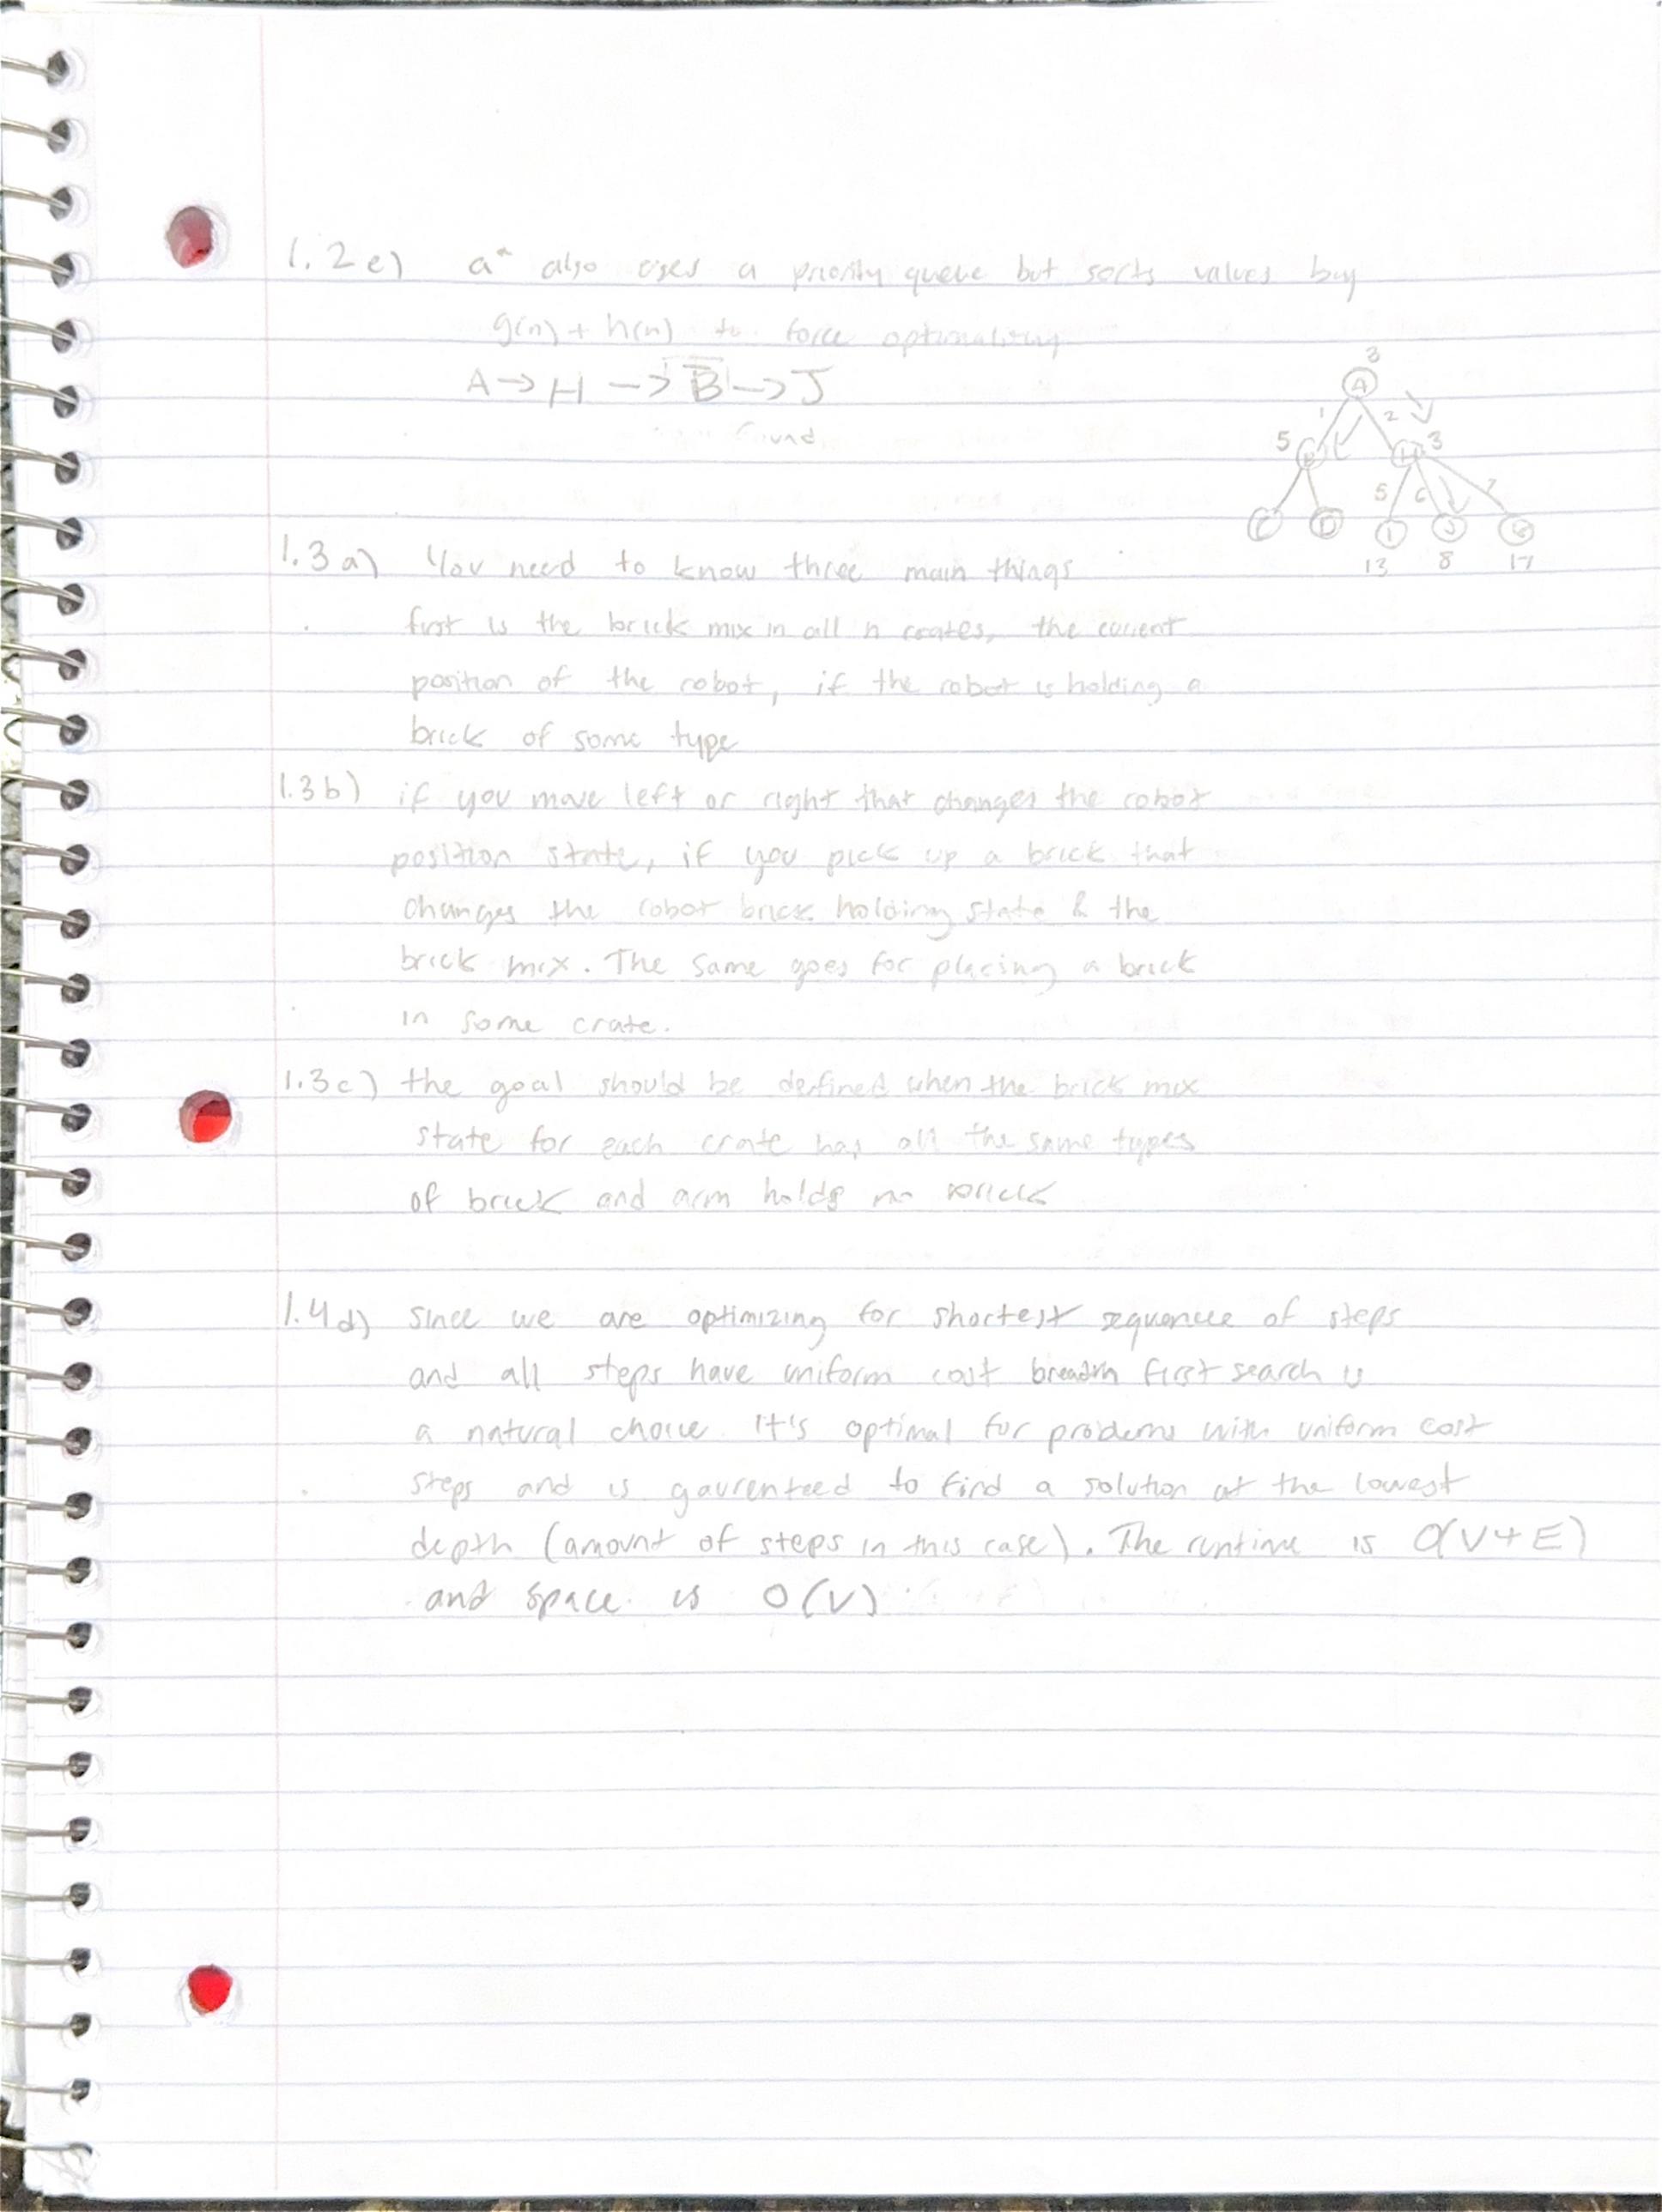 1.2e) a* also uses a priority queue but sorts values buy
g(n) + h(n) to force optimality
A → H → B → J
found
3
A
1 2
5 B H 3
5 6 7
C D I J G
13 8 17
1.3a) You need to know three main things
first is the brick mix in all n crates, the current
position of the robot, if the robot is holding a
brick of some type
1.3b) if you move left or right that changes the robot
position state, if you pick up a brick that
changes the robot brick holding state & the
brick mix. The same goes for placing a brick
in some crate.
1.3c) the goal should be defined when the brick mix
state for each crate has all the same types
of brick and arm holds no brick
1.4d) since we are optimizing for shortest sequence of steps
and all steps have uniform cost breadth first search is
a natural choice. It's optimal for problems with uniform cost
steps and is gaurenteed to find a solution at the lowest
depth (amount of steps in this case). The runtime is O(V+E)
and space is O(V)